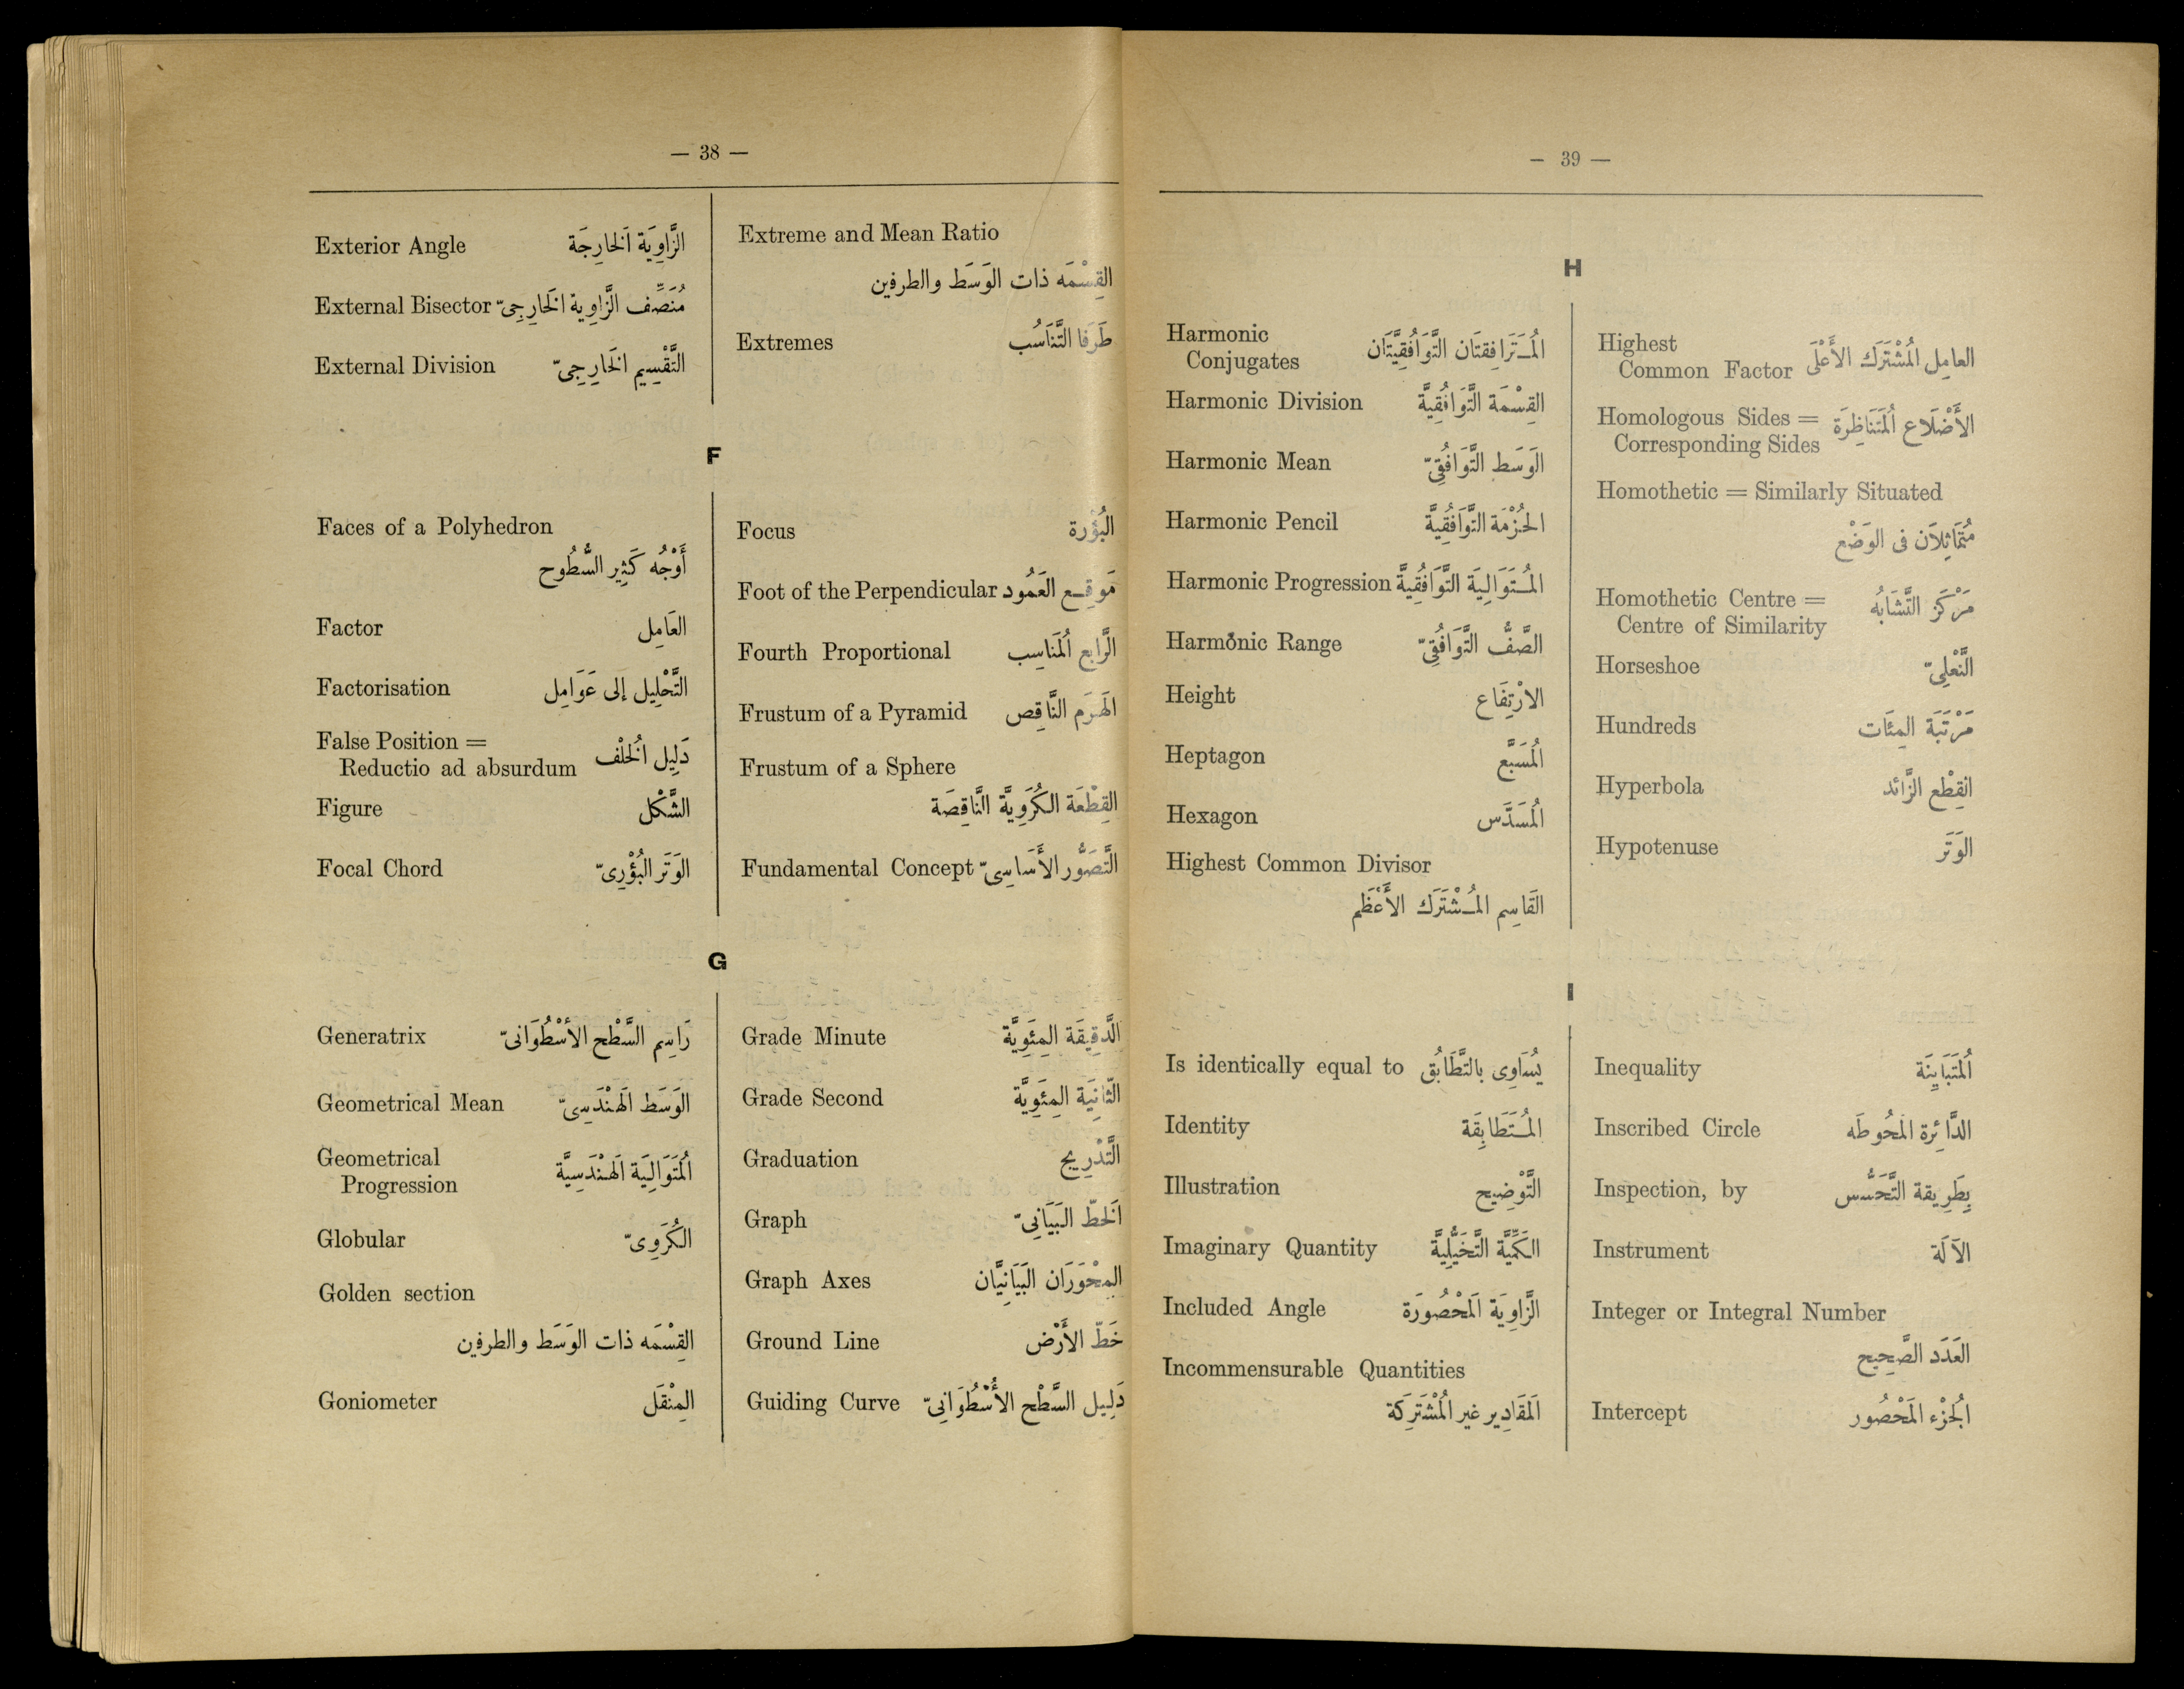 — 38 —
Exterior Angle الزَّاوِيَة اَلخارِجَة
External Bisector مُنَصِّف الزَّاوِية الخَارِجِىّ
External Division التَّقْسِيم الخَارِجِىّ
Extreme and Mean Ratio
القِسْمَه ذات الوَسَط والطرفين
Extremes طَرَفا التَّنَاسُب
F
Faces of a Polyhedron
أَوْجُه كَثِير السُّطُوح
Factor العَامِل
Factorisation التَّحْلِيل إلى عَوَامِل
False Position =
Reductio ad absurdum دَلِيل الخُلْف
Figure الشَّكْل
Focal Chord الوَتَر البُؤْرِىّ
Focus البُؤْرة
Foot of the Perpendicular مَوقِع العَمُود
Fourth Proportional الرَّابع المُنَاسِب
Frustum of a Pyramid الهَرَم النَّاقِص
Frustum of a Sphere
القِطْعَة الكُرَوِيَّة النَّاقِصَة
Fundamental Concept التَّصَوُّر الأَسَاسِىّ
G
Generatrix رَاسِم السَّطْح الأسْطُوَانىّ
Geometrical Mean الوَسَط الهَنْدَسِىّ
Geometrical
Progression المُتَوَالِيَة الهَنْدَسِيَّة
Globular الكُرَوِىّ
Golden section
القِسْمَه ذات الوَسَط والطرفين
Goniometer المِنْقَل
Grade Minute الدَّقِيقَة المِئَوِيَّة
Grade Second الثَّانِيَة المِئَوِيَّة
Graduation التَّدْرِيج
Graph الخَطّ البَيَانِىّ
Graph Axes المِحْوَرَان البَيَانِيَّان
Ground Line خَطّ الأَرْض
Guiding Curve دَلِيل السَّطْح الأُسْطُوَانِىّ
— 39 —
H
Harmonic
Conjugates المُتَرَافِقتَان التَّوَافُقِيَّتَان
Harmonic Division القِسْمَة التَّوَافُقِيَّة
Harmonic Mean الوَسَط التَّوَافُقِىّ
Harmonic Pencil الحُزْمَة التَّوَافُقِيَّة
Harmonic Progression المُتَوَالِيَة التَّوَافُقِيَّة
Harmonic Range الصَّفّ التَّوَافُقِىّ
Height الارْتِفَاع
Heptagon المُسَبَّع
Hexagon المُسَدَّس
Highest Common Divisor
القَاسِم المُشْتَرَك الأَعْظَم
Highest
Common Factor العامِل المُشْتَرَك الأَعْلَى
Homologous Sides =
Corresponding Sides الأَضْلَاع المُتَنَاظِرَة
Homothetic = Similarly Situated
مُتَمَاثِلَان فى الوَضْع
Homothetic Centre =
Centre of Similarity مَرْكَز التَّشَابُه
Horseshoe النَّعْلِىّ
Hundreds مَرْتَبَة المِئَات
Hyperbola القِطْع الزَّائد
Hypotenuse الوَتَر
I
Is identically equal to يُسَاوِى بالتَّطَابُق
Identity المُتَطَابِقَة
Illustration التَّوْضِيح
Imaginary Quantity الكَمِّيَّة التَّخَيُّلِيَّة
Included Angle الزَّاوِيَة المَحْصُورَة
Incommensurable Quantities
المَقَادِير غير المُشْتَرِكَة
Inequality المُتَبَايِنَة
Inscribed Circle الدَّائِرة المَحُوطَه
Inspection, by بِطَرِيقة التَّحَسُّس
Instrument الآلَة
Integer or Integral Number
العَدَد الصَّحِيح
Intercept الجُزْء المَحْصُور